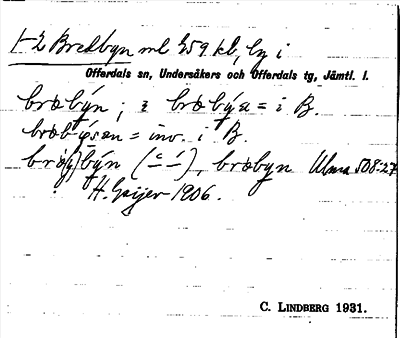 1-2 Bredbyn ml 259 kb, by i
Offerdals sn, Undersåkers och Offerdals tg, Jämtl. l.
brøbýn; i brøbýn = i B.
brøbýsan = inv. i B.
brø(y)býn (– –), brøbyn Ulma 508:27
H. Geijer 1906.
C. LINDBERG 1931.